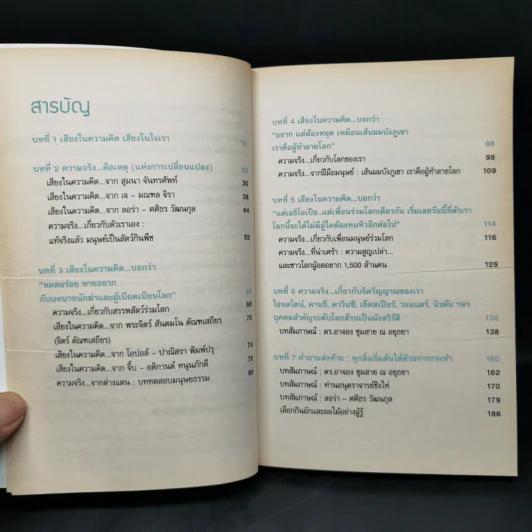 สารบัญ
บทที่ 1 เสียงในความคิด เสียงในใจเรา
บทที่ 2 ความจริง...คือเหตุ (แห่งการเปลี่ยนแปลง)
เสียงในความคิด...จาก สุมนา จันทรศัพท์ 30
เสียงในความคิด...จาก เจ - มณฑล จิรา 38
เสียงในความคิด...จาก ลอร่า - ศศิธร วัฒนกุล 44
ความจริง...เกี่ยวกับตัวเราเอง :
แท้จริงแล้ว มนุษย์เป็นสัตว์กินพืช 52
บทที่ 3 เสียงในความคิด...บอกว่า
"หมดอร่อย หายอยาก
กับบทบาทนักฆ่าและผู้เบียดเบียนโลก"
ความจริง...เกี่ยวกับสรรพสัตว์ร่วมโลก
เสียงในความคิด...จาก พระจิตร์ ตัณฑเสถียร
(จิตร์ ตัณฑเสถียร) 70
เสียงในความคิด...จาก โอปอล์ - ปาณิสรา พิมพ์ปรุ 74
เสียงในความคิด...จาก จิ๊บ - อติกานต์ ทนุนภักดี
ความจริง...จากต่างแดน : บททดสอบมนุษยธรรม
บทที่ 4 เสียงในความคิด...บอกว่า
"อยาก แต่ต้องหยุด เหมือนเส้นผมบังภูเขา
เราคือผู้ทำลายโลก" 98
ความจริง...เกี่ยวกับโลกของเรา 98
ความจริง...จากฝีมือมนุษย์ : เส้นผมบังภูเขา เราคือผู้ทำลายโลก 109
บทที่ 5 เสียงในความคิด...บอกว่า
"แด่เอธิโอเปีย...แด่เพื่อนร่วมโลกเดียวกัน เริ่มเลยวันนี้ที่ตัวเรา
โลกนี้จะได้ไม่มีผู้ใดต้องทนหิวอีกต่อไป" 114
ความจริง...เกี่ยวกับเพื่อนมนุษย์ร่วมโลก 116
ความจริง...ที่น่าเศร้า : ความสูญเปล่า...
และชาวโลกผู้อดอยาก 1,500 ล้านคน 126
บทที่ 6 ความจริง...เกี่ยวกับจิตวิญญาณของเรา
ไอน์สไตน์, คานธี, ดาวินชี, เช็คสเปียร์, วอลแตร์, นิวตัน ฯลฯ
บุคคลสำคัญระดับโลกล้วนเป็นมังสวิรัติ 132
บทสัมภาษณ์ : ดร.อาจอง ชุมสาย ณ อยุธยา 138
บทที่ 7 คำถามส่งท้าย : ทุกสิ่งเริ่มต้นได้ด้วยการกระทำ 160
บทสัมภาษณ์ : ดร.อาจอง ชุมสาย ณ อยุธยา 162
บทสัมภาษณ์ : ท่านอนุตราจารย์ชิงไห่ 170
บทสัมภาษณ์ : ลอร่า - ศศิธร วัฒนกุล 179
เลือกกินผักและผลไม้อย่างผู้รู้ 186